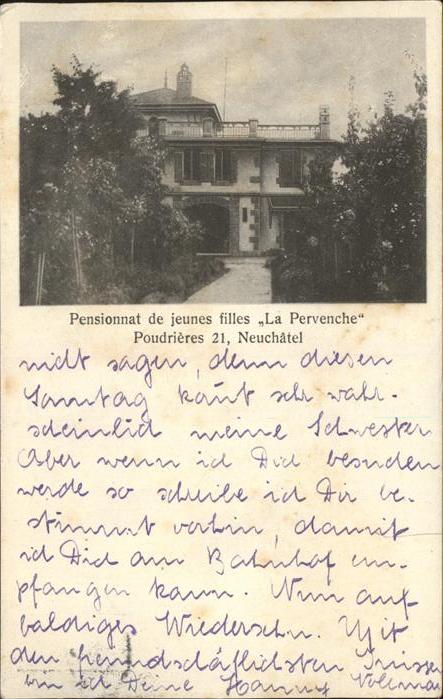 Pensionnat de jeunes filles „La Pervenche“
Poudrières 21, Neuchâtel
nicht sagen, denn diesen
Sonntag kommt sehr wahr-
scheinlich meine Schwester
Aber wenn ich Dich besuchen
werde so schreibe ich Dir be-
stimmt vorhin, damit
ich Dich am Bahnhof em-
pfangen kann. Nun auf
baldiges Wiedersehn. Mit
den freundschäftlichsten Grüssen
bin ich Deine Hanny